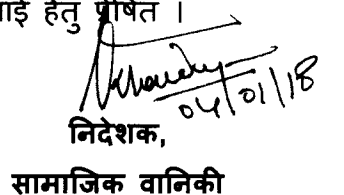 हेतु प्रेषित ।
04/01/18
निदेशक,
सामाजिक वानिकी